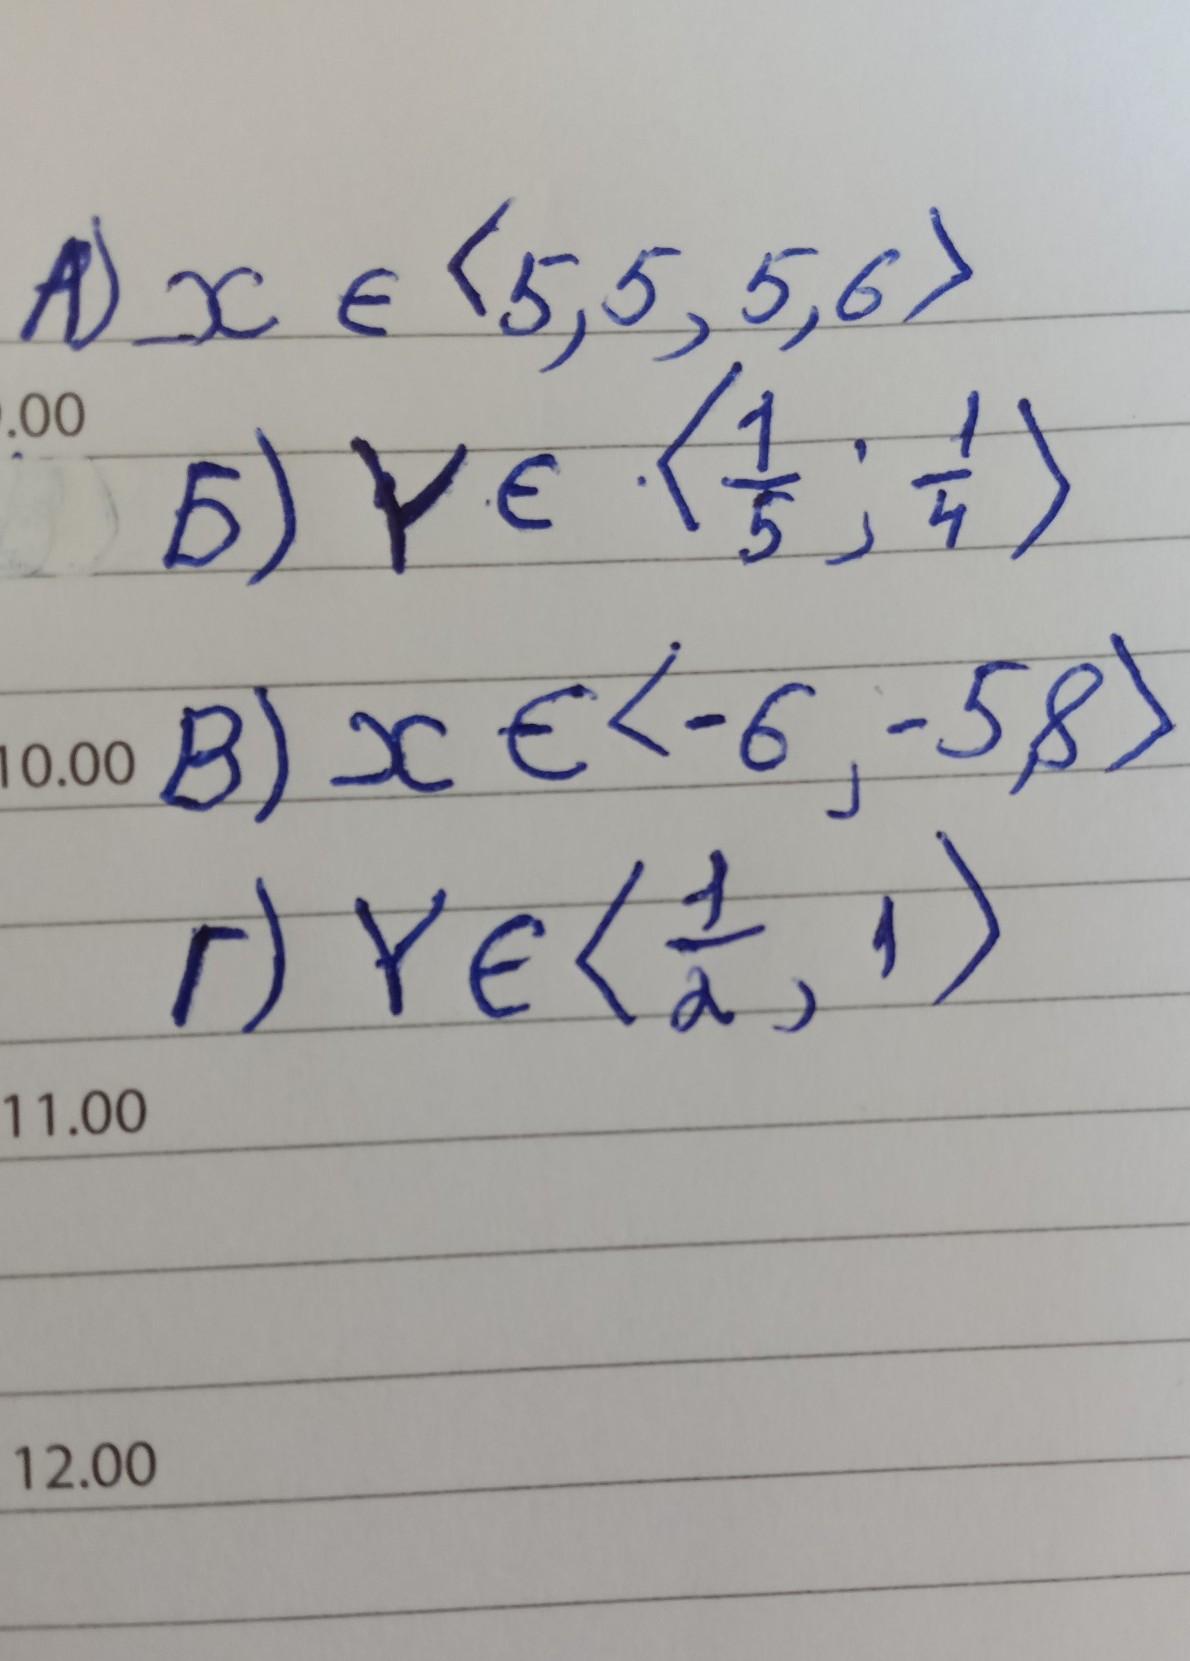 А) x ∈ ⟨5,5, 5,6⟩
9.00
Б) Y ∈ ⟨1/5; 1/4⟩
10.00 В) x ∈ ⟨-6, -5,8⟩
Г) Y ∈ ⟨1/2, 1⟩
11.00
12.00